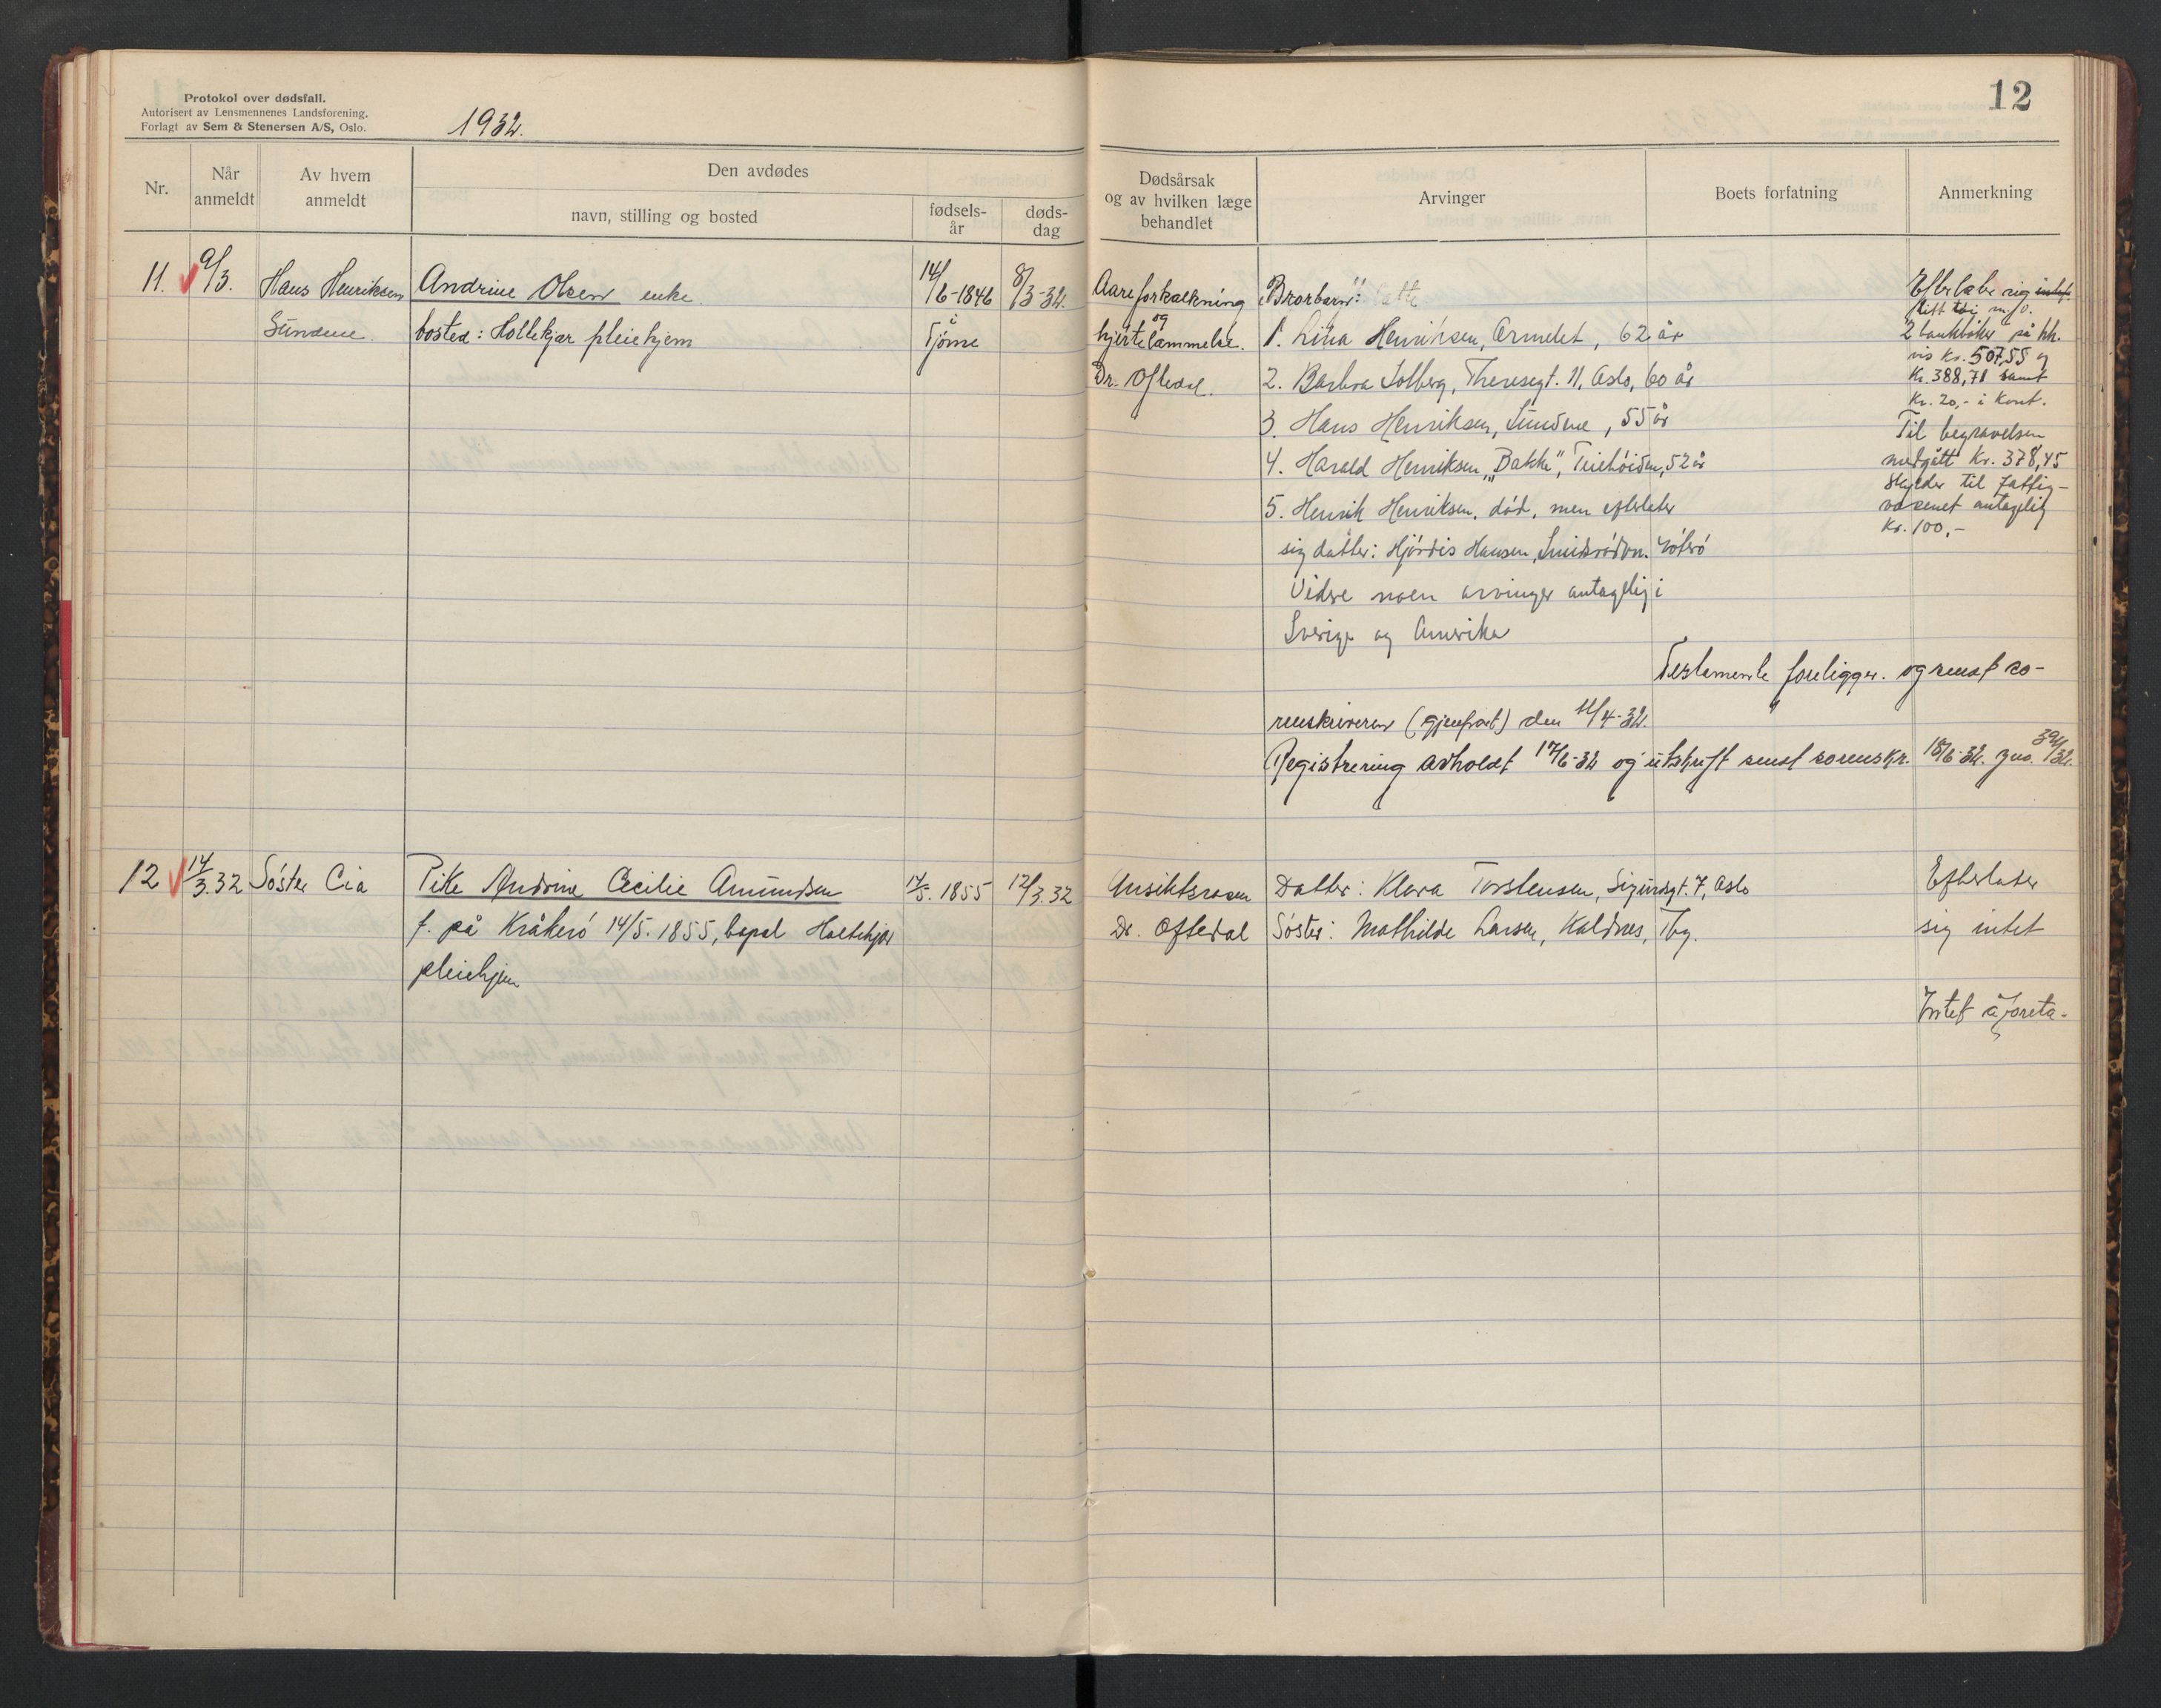 Protokol over dødsfall.
Autorisert av Lensmennenes Landsforening.
Forlagt av Sem & Stenersen A/S, Oslo.
1932.
Nr.
Når anmeldt
Av hvem anmeldt
Den avdødes
navn, stilling og bosted
fødsels-
år
døds-
dag
12
Dødsårsak
og av hvilken læge
behandlet
Arvinger
Boets forfatning
Anmerkning
11.
9/3.
Hans Henriksen
Sundene.
Andrine Olsen enke.
bosted: Holtekjær pleiehjem
14/6-1846
i
Tjøme
8/3-32.
Aareforkalkning
og
hjertelammelse.
Dr. Oftedal.
Brorbarn:
1. Lina Henriksen, Ormelet, 62 år
2. Barbra Solberg, Theresegt. 11, Oslo, 60 år
3. Hans Henriksen, Sundene, 55 år
4. Harald Henriksen, "Bakke", Teiehöiden, 52 år
5. Henrik Henriksen, död, men efterlater
sig datter: Hjördis Hansen, Smidsrödvn. Nöterö
Videre noen arvinger antagelig i
Sverige og Amerika
Testamente foreligger. og sendt so-
renskriveren (gjenpart) den 11/4-32.
Registrering avholdt 17/6-32 og utskrift sendt sorenskr. 18/6-32. jno. 394/32.
Efterlater sig intet.
litt töi m.v.
2 bankböker på hh.
vis kr. 507,55 og
kr. 388,71 samt
kr. 20,- i kont.
Til begravelsen
medgått kr. 378,45
skylder til fattig-
vesenet antagelig
kr. 100,-
12
14/3.32
Söster Cia
Pike Andrine Cecilie Amundsen
f. på Kråkerö 14/5. 1855, bopel Holtekjær
pleiehjem
14/5. 1855
12/3.32
Ansiktsrosen
Dr. Oftedal
Datter: Klara Torstensen, Sigurdsgt. 7, Oslo
Söster: Mathilde Larsen, Kaldnes, Tbg.
Efterlater
sig intet
Intet å foreta.